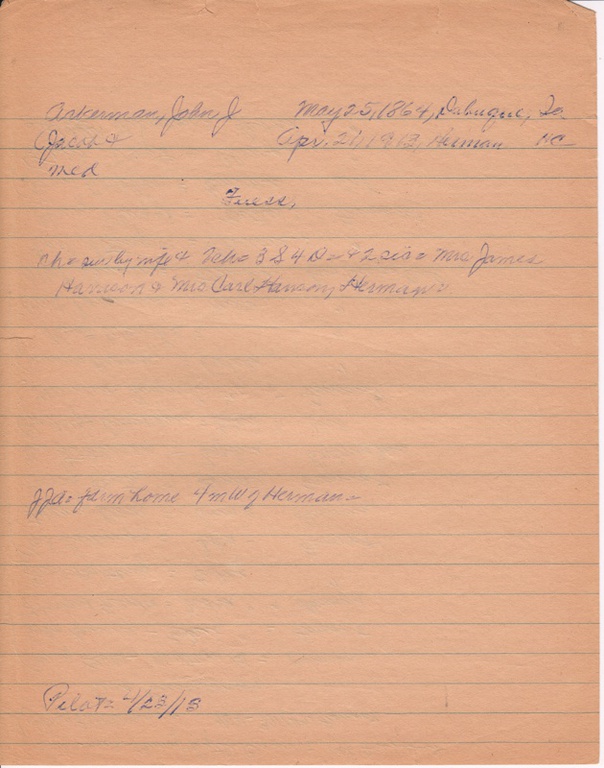 Arkerman, John, J May 25, 1864, Dubuque, Ia
(Jacob & Apr. 21, 1913, Herman
med
Fuess,
by wife & 7ch = 3 S 4 D = & 2 sis = Mrs James
Harrison & Mrs Carl Hanson, Herman =
JJA = farm home 4 m W of Herman =
Pilot = 4/23/13